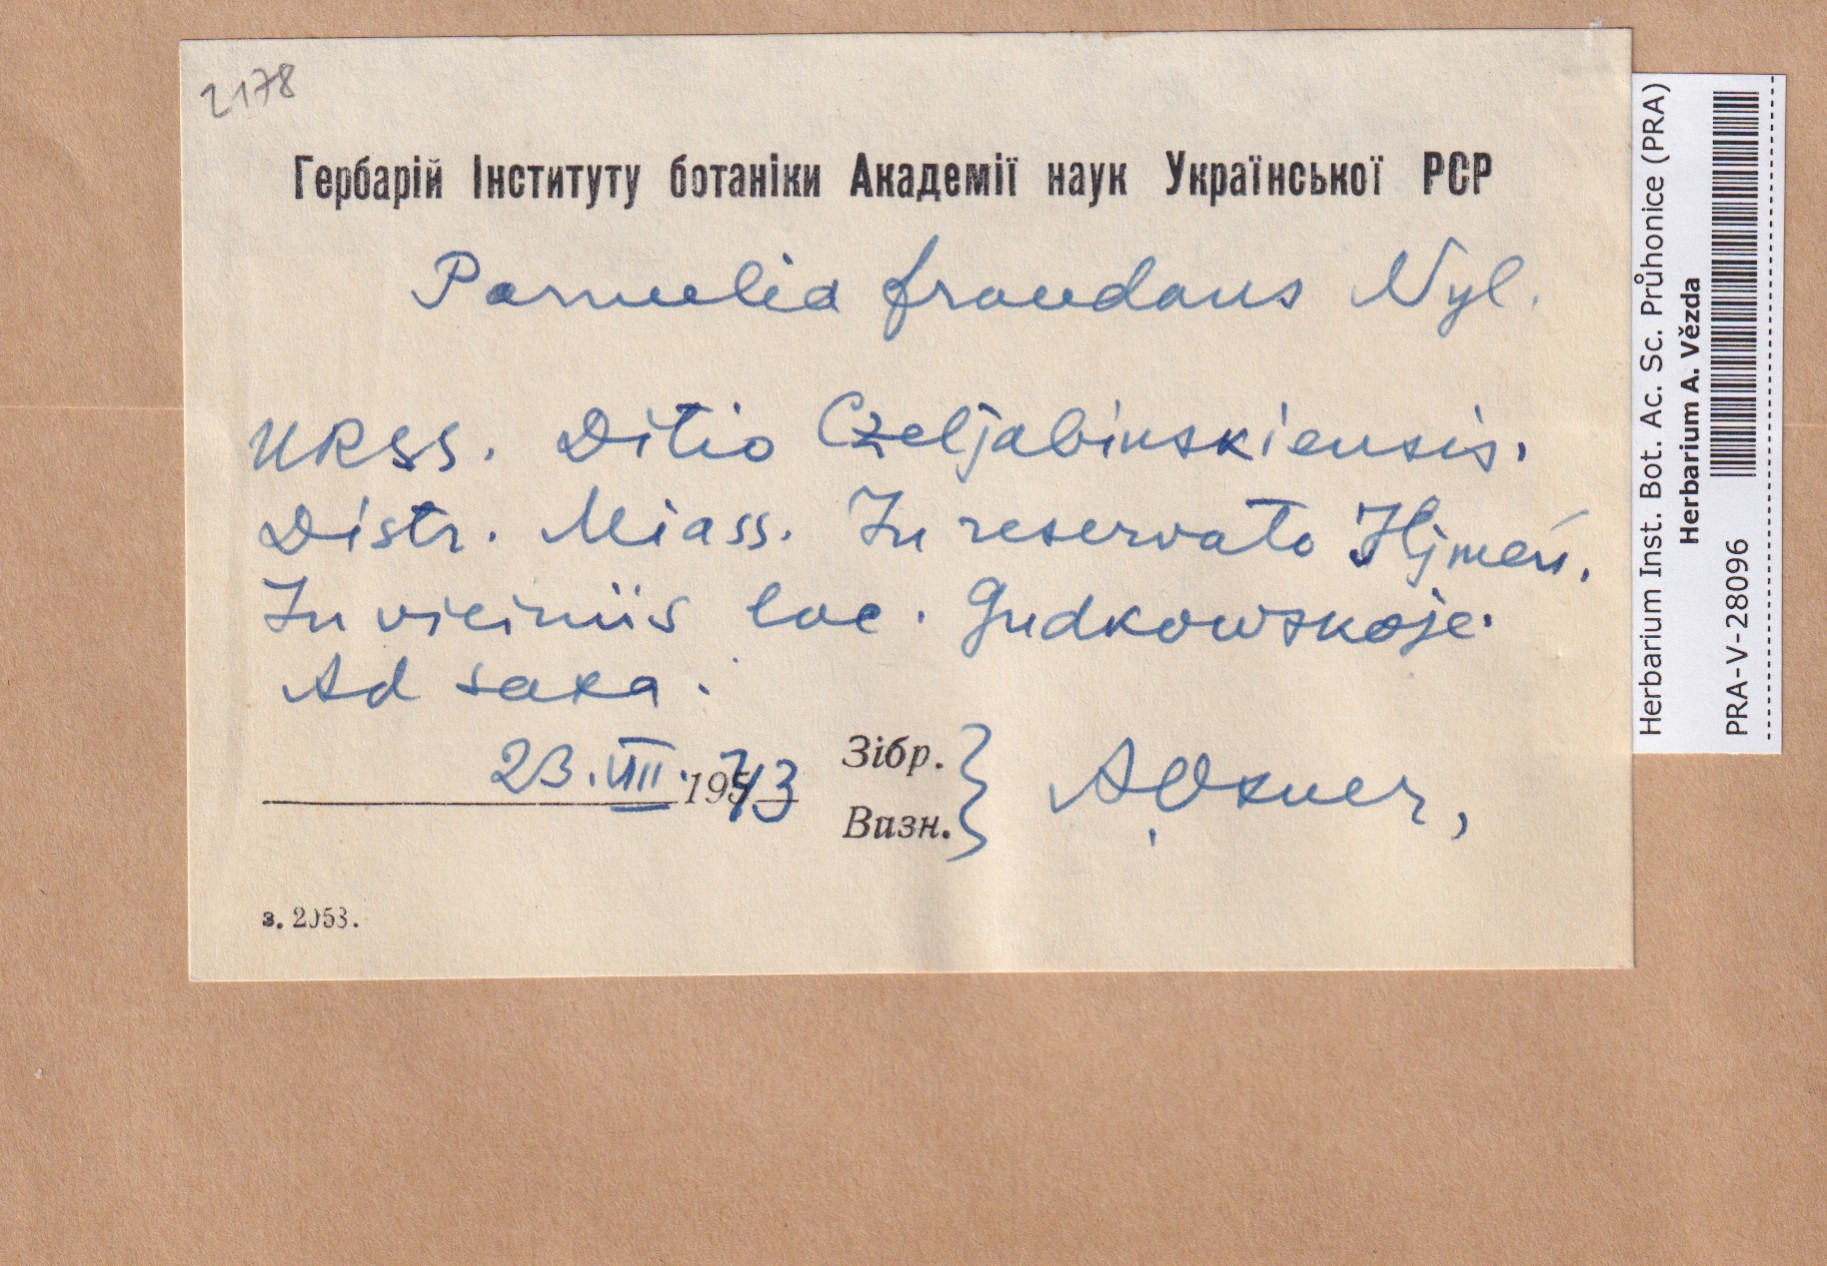 2178
Гербарій Інституту ботаніки Академії наук Української РСР
Parmelia fraudans Nyl.
URSS. Ditio Czeljabinskiensis.
Distr. Miass. In reservato Iljmeń.
In viciniis loc. Gudkowskoje.
Ad saxa.
23.VIII.1943 Зібр.
Визн. } A Oxner,
з. 2053.
Herbarium Inst. Bot. Ac. Sc. Průhonice (PRA)
Herbarium A. Vězda
PRA-V-28096